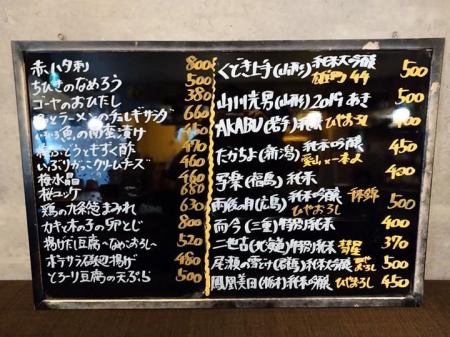 赤ハタ刺 800
ちびきのなめろう 500
ゴーヤのおひたし 380
とラーメンのチョレギサラダ 660
魚の南蛮漬け 450
ぶどうともずく酢 470
いぶりがっこクリームチーズ 460
梅水晶 460
桜ユッケ 680
鶏の九条葱まみれ 630
カキと木の子の卵とじ 800
揚げだし豆腐〜なめこおろし〜 520
ポテサラ磯辺揚げ 480
とろーり豆腐の天ぷら 500
くどき上手(山形)純米大吟醸 44 500
山川光男(山形)2019 あき 500
AKABU(岩手)純米 ひやおろし 400
たかちよ(新潟) 愛山 一本〆 450
写楽(福島)純米 400
雨後の月(広島)純米吟醸 ひやおろし 500
而今(三重)特別純米 400
二世古(北海道)特別純米 彗星 370
尾瀬の雪どけ(群馬)純米大吟醸 ひやおろし 500
鳳凰美田(栃木)純米吟醸 ひやおろし 450